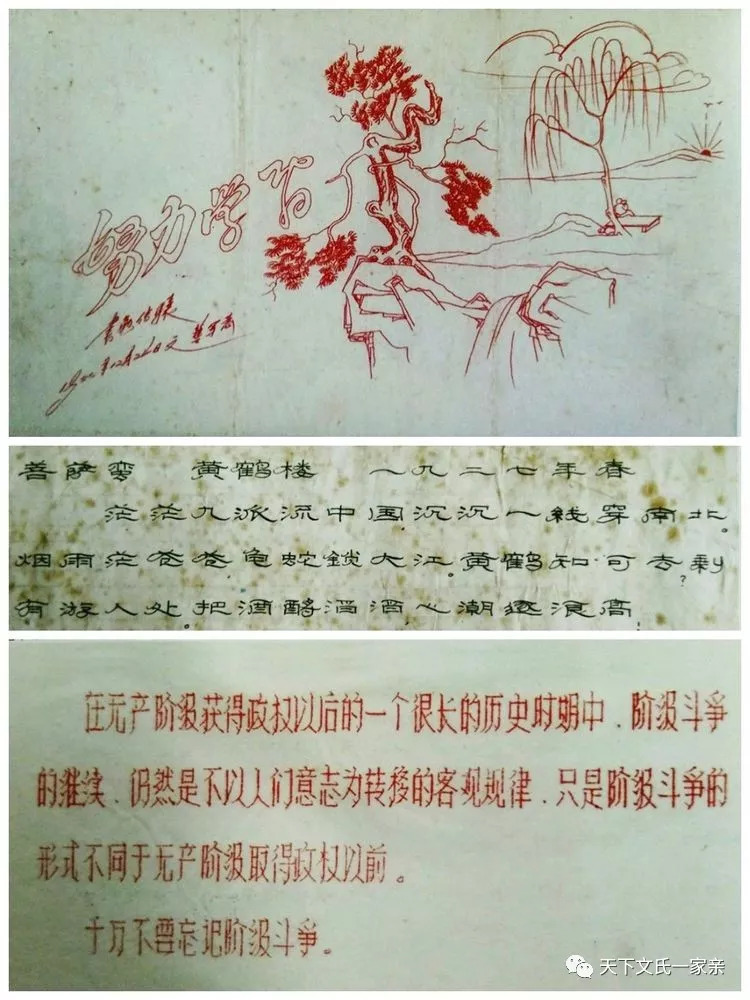 努力学习
菩萨蛮 黄鹤楼 一九二七年春
茫茫九派流中国,沉沉一綫穿南北。
烟雨茫苍苍,龟蛇鎖大江。黄鹤知可去?剩
有游人处。把酒酹滔滔心潮逐浪高
在无产阶级获得政权以后的一个很长的历史时期中、阶级斗争
的继续、仍然是不以人们意志为转移的客观规律、只是阶级斗争的
形式不同于无产阶级取得政权以前。
千万不要忘记阶级斗争。
天下文氏一家亲